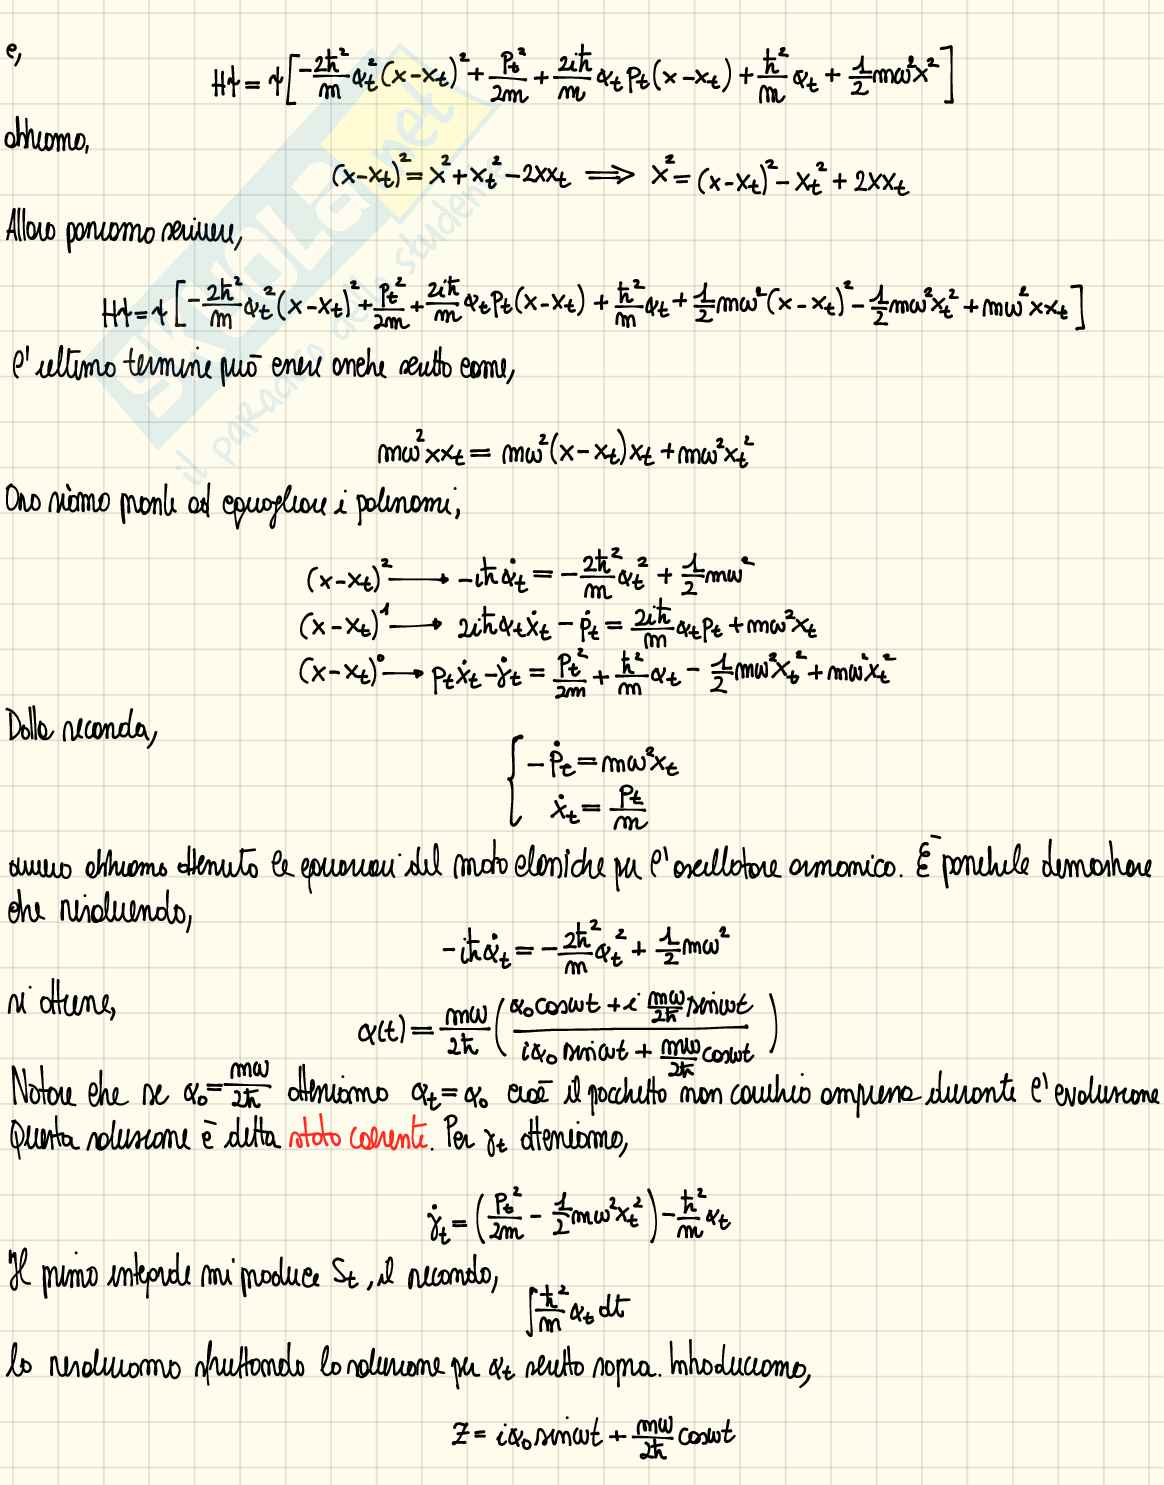 e,
Hψ = ψ[-2ħ²/m α_t²(x-x_t)² + p_t²/2m + 2iħ/m α_t p_t(x-x_t) + ħ²/m α_t + 1/2 mω²x²]
abbiamo,
(x-x_t)² = x² + x_t² - 2xx_t ⟹ x² = (x-x_t)² - x_t² + 2xx_t
Allora possiamo scrivere,
Hψ = ψ[-2ħ²/m α_t²(x-x_t)² + p_t²/2m + 2iħ/m α_t p_t(x-x_t) + ħ²/m α_t + 1/2 mω²(x-x_t)² - 1/2 mω²x_t² + mω²xx_t]
l'ultimo termine può essere anche scritto come,
mω²xx_t = mω²(x-x_t)x_t + mω²x_t²
Ora siamo pronti ad eguagliare i polinomi,
(x-x_t)² → -iħα̇_t = -2ħ²/m α_t² + 1/2 mω²
(x-x_t)¹ → 2iħα_tẋ_t - ṗ_t = 2iħ/m α_t p_t + mω²x_t
(x-x_t)⁰ → p_tẋ_t - γ̇_t = p_t²/2m + ħ²/m α_t - 1/2 mω²x_t² + mω²x_t²
Dalla seconda,
{ -ṗ_t = mω²x_t
ẋ_t = p_t/m
ovvero abbiamo ottenuto le equazioni del moto classiche per l'oscillatore armonico. È possibile dimostrare
che risolvendo,
-iħα̇_t = -2ħ²/m α_t² + 1/2 mω²
si ottiene,
α(t) = mω/2ħ ( (α₀cosωt + i mω/2ħ sinωt) / (iα₀ sinωt + mω/2ħ cosωt) )
Notare che se α₀ = mω/2ħ otteniamo α_t = α₀ cioè il pacchetto non cambia ampiezza durante l'evoluzione
Questa soluzione è detta stato coerente. Per γ_t otteniamo,
γ̇_t = (p_t²/2m - 1/2 mω²x_t²) - ħ²/m α_t
Il primo integrale mi produce S_t, il secondo,
∫ħ²/m α_t dt
lo risolviamo sfruttando la soluzione per α_t scritto sopra. Introduciamo,
Z = iα₀ sinωt + mω/2ħ cosωt
SKUOLA.net
il paradiso dello studente